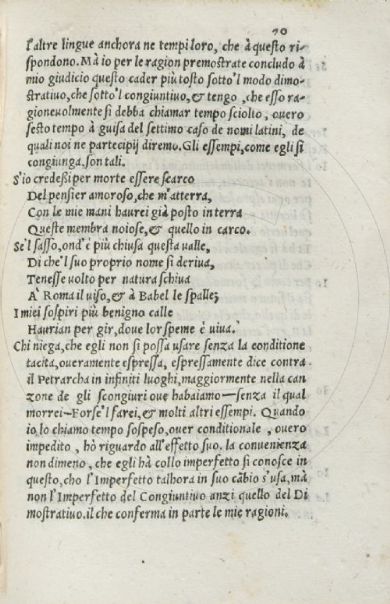 70
l'altre lingue anchora ne tempi loro, che à questo ri-
spondono. Mà io per le ragion premostrate concludo à
mio giudicio questo cader più tosto sotto'l modo dimo-
strativo, che sotto'l congiuntivo, & tengo, che esso ra-
gionevolmente si debba chiamar tempo sciolto, overo
sesto tempo à guisa del settimo caso de nomi latini, de
quali noi ne partecipij diremo. Gli essempi, come egli si
congiunga, son tali.
S'io credeßi per morte essere scarco
Del pensier amoroso, che m'atterra,
Con le mie mani haurei già posto in terra
Queste membra noiose, & quello in carco.
Se'l sasso, ond'è più chiusa questa valle,
Di che'l suo proprio nome si deriva,
Tenesse volto per natura schiva
A' Roma il viso, & à Babel le spalle;
I miei sospiri più benigno calle
Haurian per gir, dove lor speme è viva.
Chi niega, che egli non si possa usare senza la conditione
tacita, overamente espressa, espressamente dice contra
il Petrarcha in infiniti luoghi, maggiormente nella can
zone de gli scongiuri ove habaiamo—senza il qual
morrei—Forse'l farei, & molti altri essempi. Quando
io, lo chiamo tempo sospeso, over conditionale, overo
impedito, hò riguardo all'effetto suo. la convenienza
non dimeno, che egli hà collo imperfetto si conosce in
questo, cho l'Imperfetto talhora in suo cãbio s'usa, mà
non l'Imperfetto del Congiuntivo anzi quello del Di
mostrativo. il che conferma in parte le mie ragioni.